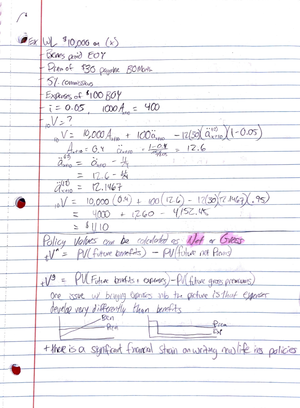 Ex WL $10,000 on (x)
- Benes paid EOY
- Prem of $30 payable BOMonth
- 5% commissions
- Expenses of $100 BOY
- i = 0.05, 1000Ax+10 = 400
10V = ?
10V = 10,000Ax+10 + 100äx+10 - 12(30)(ä(12)x+10)(1-0.05)
Ax+10 = 0.4 äx+10 = = 12.6
ä(12)x+10 = äx+10 -
= 12.6 -
ä(12)x+10 = 12.1467
10V = 10,000(0.4) + 100(12.6) - 12(30)(12.1467)(.95)
= 4000 + 1260 -
= $1110
Policy Values can be calculated as Net or Gross
tVn = PV(future benefits) - PV(future net Prems)
tVg = PV(future benefits + expenses) - PV(future gross premiums)
one issue w/ bringing expenses into the picture is that expenses
develop very differently than benefits
Ben
Prem
Prem
Exp
+ there is a significant financial strain on writing new life ins policies